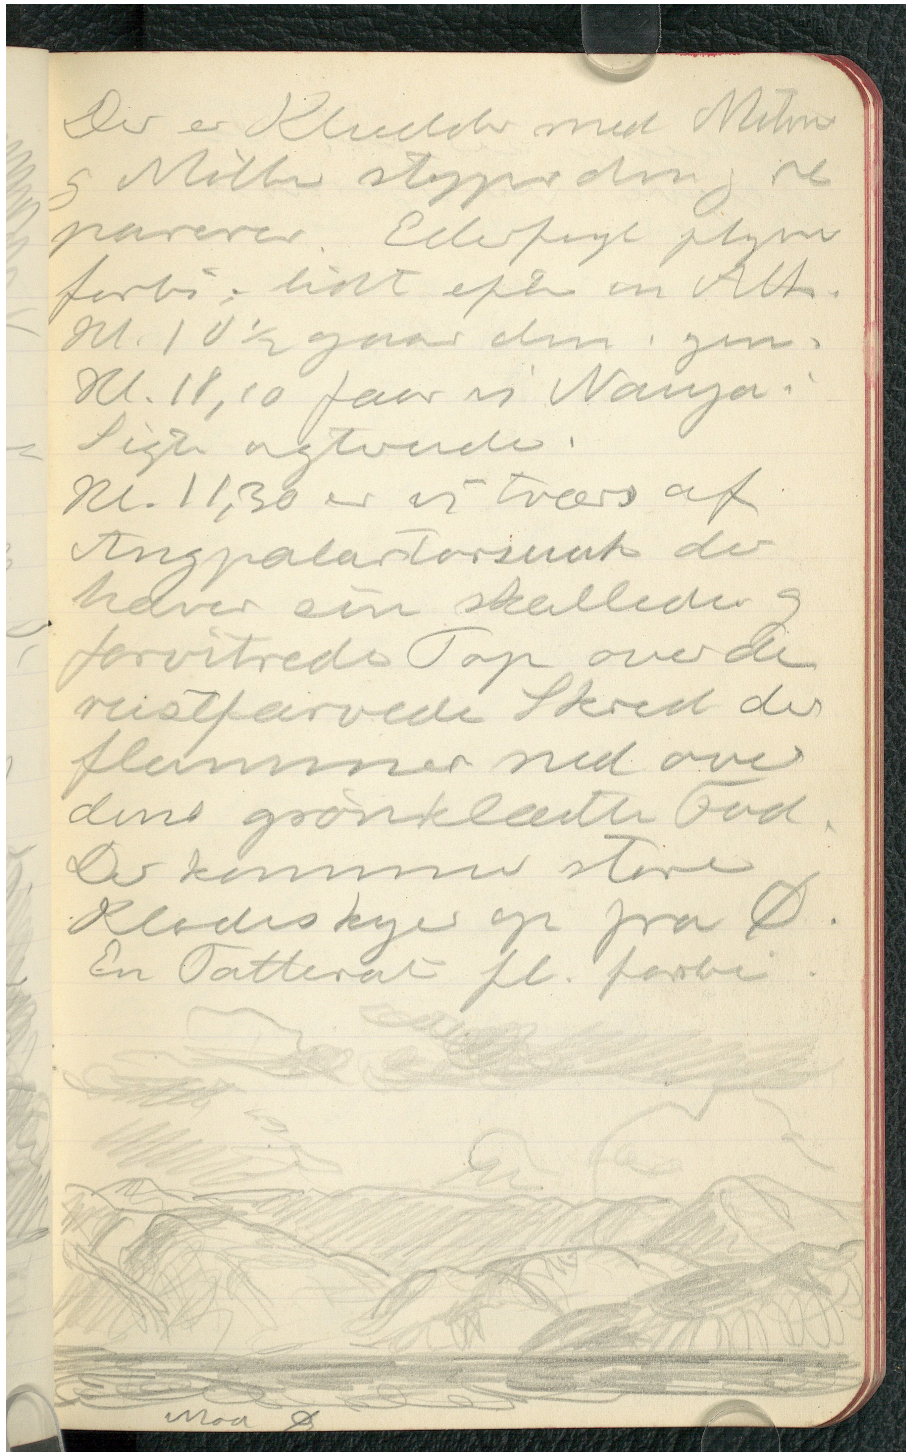 Der er Kludder med Motoren
og Møller stopper den og re
parerer. Ederfugl flyver
forbi; lidt efter en Alk.
Kl. 10½ gaar den igen.
Kl. 18,10 faar vi Nanya i
Sigte agterude.
Kl. 11,30 er vi tværs af
Angpalartorsuak der
hæver sin skallede og
forvitrede Top over de
rustfarvede Skred der
flammer ned over
dens grönklædte Fod.
Der kommer store
Klodeskyer op fra Ø.
En Tatterat fl. forbi.
Mod Ø